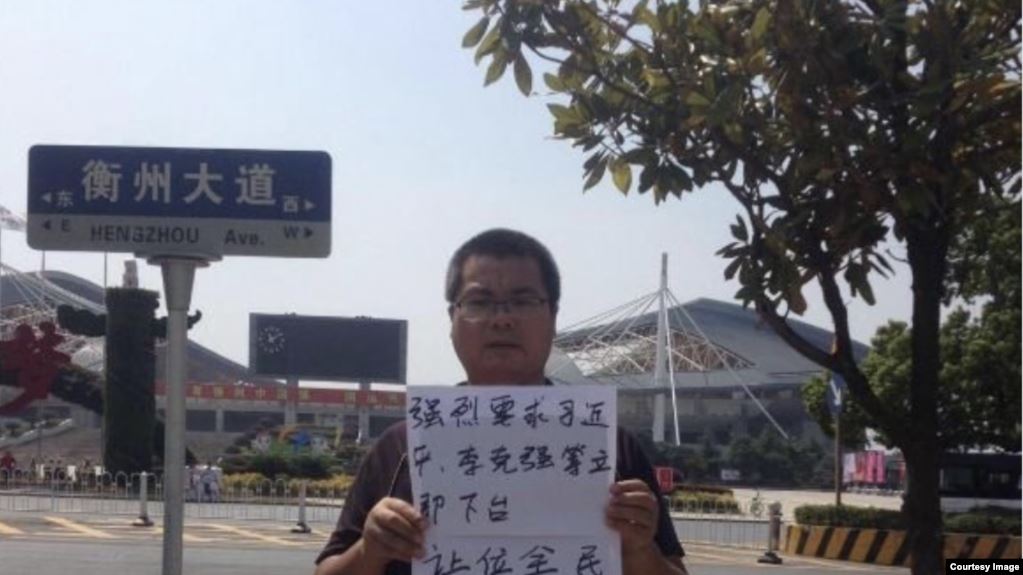 衡州大道
东 西
E HENGZHOU Ave. W
强烈要求习近
平、李克强等立
即下台
让位全民
Courtesy Image